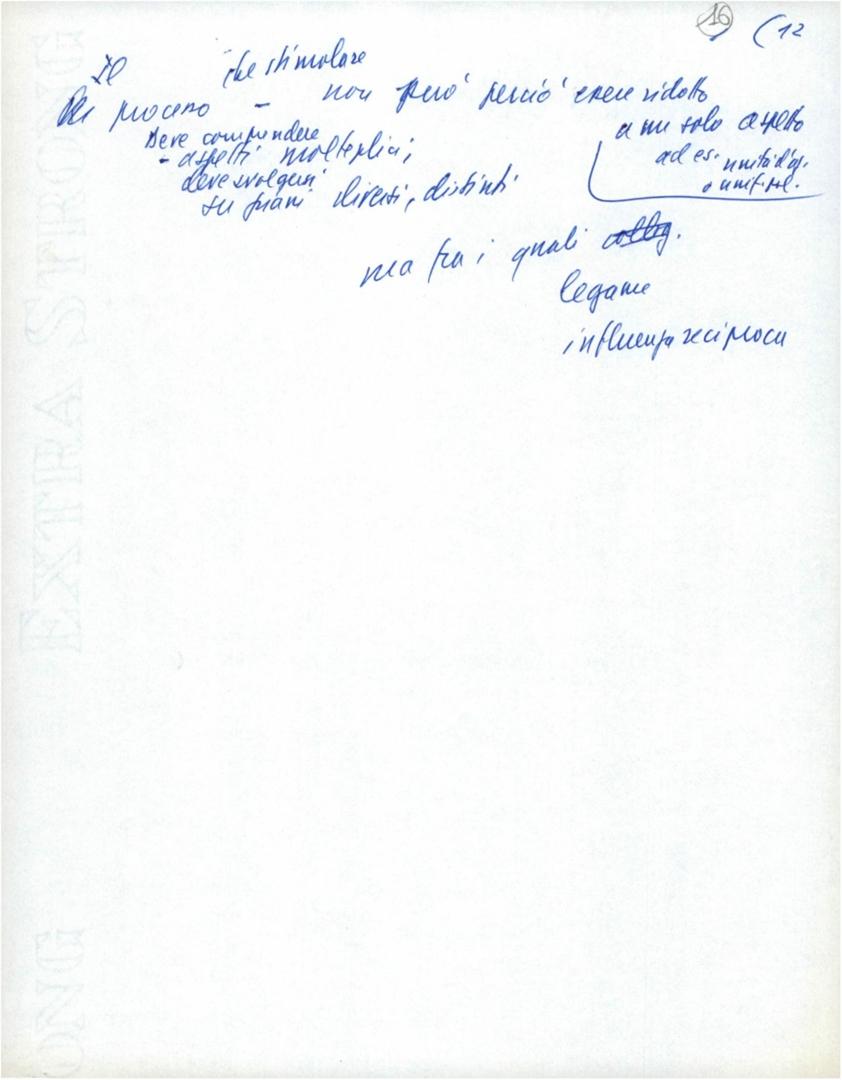 16 (12
Il che stimolare
processo - non può perciò essere ridotto
a un solo aspetto
ad es. unità d'az.
o unif.
Deve comprendere
- aspetti molteplici,
deve svolgersi
su piani diversi, distinti
ma fra i quali
legame
influenza reciproca
EXTRA STRONG